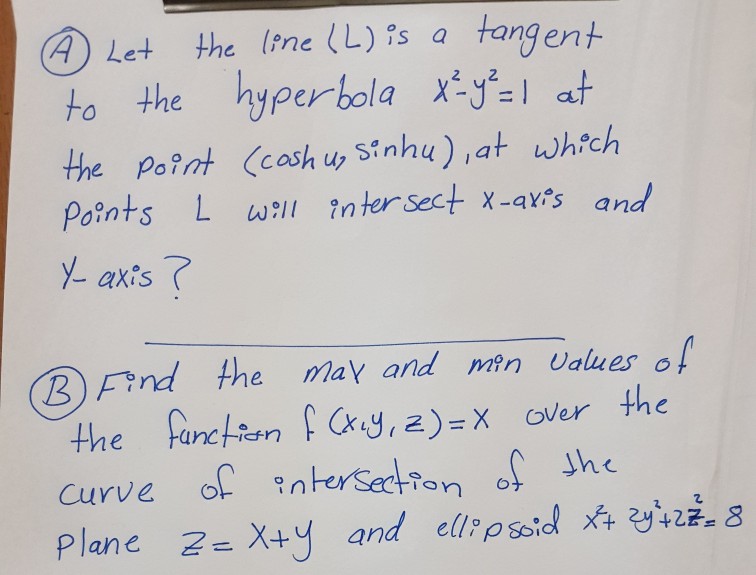 (A) Let the line (L) is a tangent
to the hyperbola x²-y²=1 at
the point (cosh u, sinhu), at which
Points L will intersect x-axis and
Y-axis?
(B) Find the max and min values of
the function f (x,y,z)=x over the
curve of intersection of the
plane z=x+y and ellipsoid x²+ 2y²+2z²=8